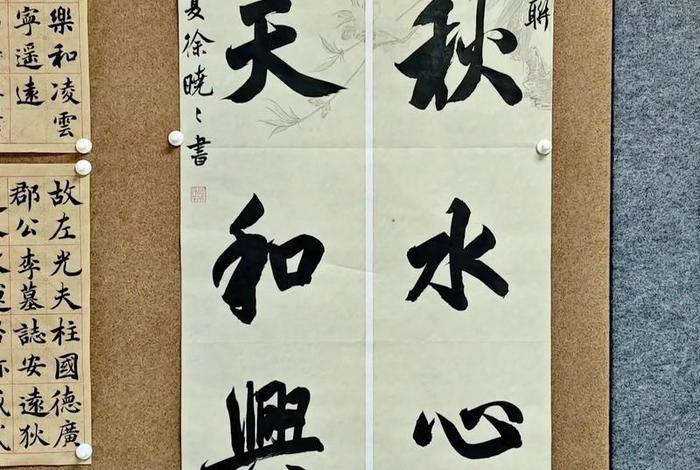 聯
秋水心
天和興
夏徐曉〻書
樂和凌雲
寧遥遠
故左光夫柱國德廣
郡公李墓誌安遠狄